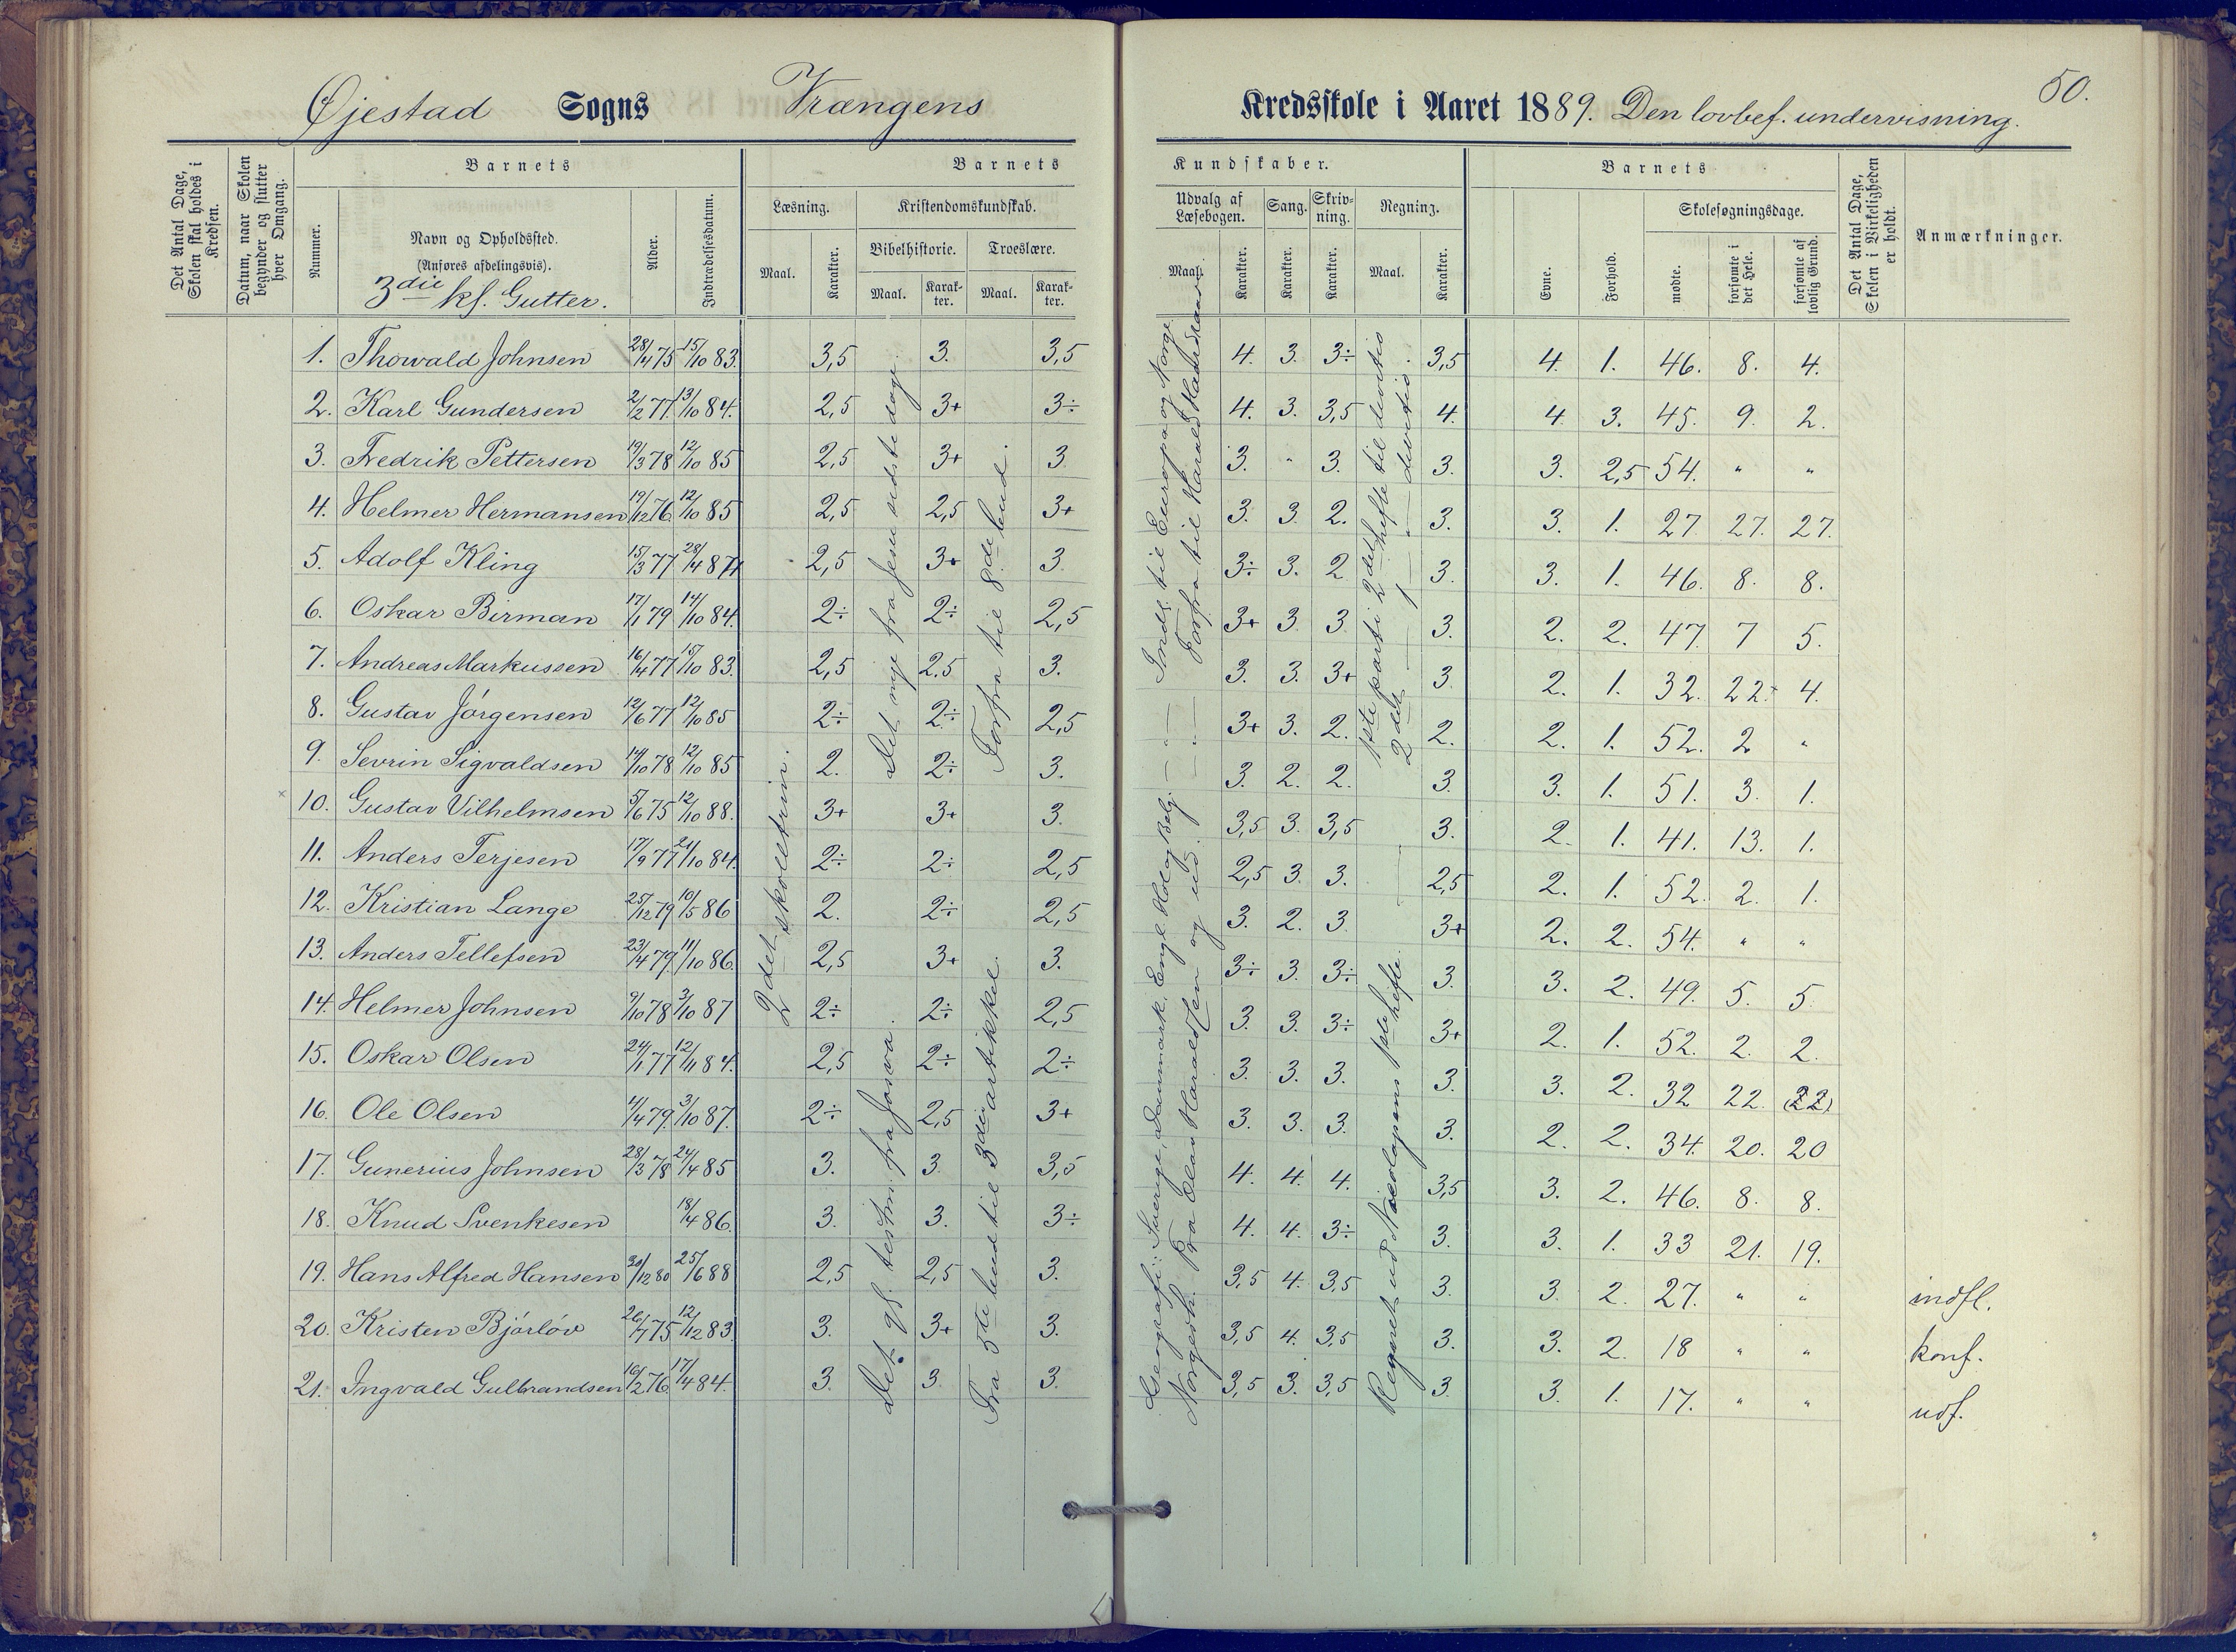 50.
Øjestad Sogns Vrængens Kredsskole i Aaret 1889. Den lovbef. undervisning.
Det Antal Dage, Skolen skal holdes i Kredsen.
Datum, naar Skolen begynder og slutter hver Omgang.
Barnets
Nummer.
Navn og Opholdssted.
(Anføres afdelingsvis).
3die kl. Gutter.
Alder.
Indtrædelsesdatum.
Barnets Kundskaber.
Læsning.
Maal.
Karakter.
Kristendomskundskab.
Bibelhistorie.
Maal.
Karakter.
Troeslære.
Maal.
Karakter.
Udvalg af Læsebogen.
Maal.
Karakter.
Sang.
Karakter.
Skrivning.
Karakter.
Regning.
Maal.
Karakter.
Barnets
Evne.
Forhold.
Skolesøgningsdage.
mødte.
forsømte i det Hele.
forsømte af lovlig Grund.
Det Antal Dage, Skolen i Virkeligheden er holdt.
Anmærkninger.
1. Thorvald Johnsen 28/4 75 15/10 83. 3,5 3. 3,5 4. 3. 3÷ 3,5 4. 1. 46. 8. 4.
2. Karl Gundersen 2/2 77. 13/10 84. 2,5 3+ 3÷ 4. 3. 3,5 4. 4 3. 45. 9. 2.
3. Fredrik Pettersen 19/3 78 12/10 85 2,5 3+ 3 3. " 3. 3. 3. 2,5 54. " "
4. Helmer Hermansen 19/12 76 12/10 85 2,5 2,5 3+ 3. 3. 2. 3. 3. 1. 27 27. 27.
5. Adolf Kling 15/3 77 28/4 87 2,5 3+ 3 3÷ 3. 2 3. 3. 1. 46. 8. 8.
6. Oskar Birman 17/1 79 14/10 84. 2÷ 2÷ 2,5 3+ 3 3 3. 2. 2. 47 7 5.
7. Andreas Markussen 16/4 77 15/10 83. 2,5 2.5 3. 3. 3. 3+ 3 2. 1. 32. 22. 4.
8. Gustav Jörgensen 12/6 77 12/10 85 2÷ 2÷ 2,5 3+ 3. 2. 2. 2. 1. 52. 2 "
9. Sevrin Sigvaldsen 14/10 78 12/10 85 2. 2÷ 3. 3. 2. 2. 3. 3. 1. 51. 3. 1.
× 10. Gustav Vilhelmsen 5/6 75 12/10 88. 3+ 3+ 3. 3,5 3. 3,5 3. 2. 1. 41. 13. 1.
11. Anders Terjesen 17/9 77 21/10 84. 2÷ 2÷ 2,5 2,5 3. 3. 2,5 2. 1. 52. 2. 1.
12. Kristian Lange 25/12 79 10/5 86 2. 2÷ 2,5 3. 2. 3. 3+ 2. 2. 54. " "
13. Anders Tellefsen 23/4 79 11/10 86. 2,5 3+ 3. 3÷ 3. 3÷ 3. 3. 2. 49. 5. 5.
14. Helmer Johnsen 9/10 78 3/10 87 2÷ 2÷ 2,5 3. 3. 3÷ 3+ 2. 1. 52. 2. 2.
15. Oskar Olsen 24/1 77 12/11 84. 2,5 2÷ 2÷ 3. 3. 3. 3. 3. 2. 32 22. 22
16. Ole Olsen 11/4 79. 3/10 87. 2÷ 2,5 3+ 3. 3. 3. 3. 2. 2. 34. 20. 20
17. Gunerius Johnsen 28/3 78 24/4 85 3. 3. 3,5 4. 4. 4. 3,5 3. 2. 46. 8. 8.
18. Knud Svenkesen 18/4 86. 3. 3. 3÷ 4. 4. 3÷ 3. 3. 1. 33 21. 19.
19. Hans Alfred Hansen 30/12 80 25/6 88 2,5 2,5 3. 3,5 4. 3,5 3. 3. 2. 27. " " indfl.
20. Kristen Bjórlöv 26/7 75 12/12 83. 3. 3+ 3. 3,5 4. 3,5 3. 3. 2. 18 " " konf.
21. Ingvald Gulbrandsen 16/2 76. 17/4 84. 3. 3 3. 3,5 3. 3,5 3. 3. 1. 17. " " udf.
2det skoletrin.
Det gl. testm. fra Josva.
Det nye fra Jesu sidste dage.
Fra 5te bud til 3die artikkel.
Forfra til 8de bud.
Geografi: Sverige, Danmark, Engl. Hol. og Belg. — " — Indl. til Europa og Norge.
Norgesh. Fra Olav Haraldsen og ud. — " — Forfra til Harald Haardraade
Regnet ud Nicolaysens 1ste hefte.
1ste parti 2det hefte til divisio
2det — 1 — " — divisio.